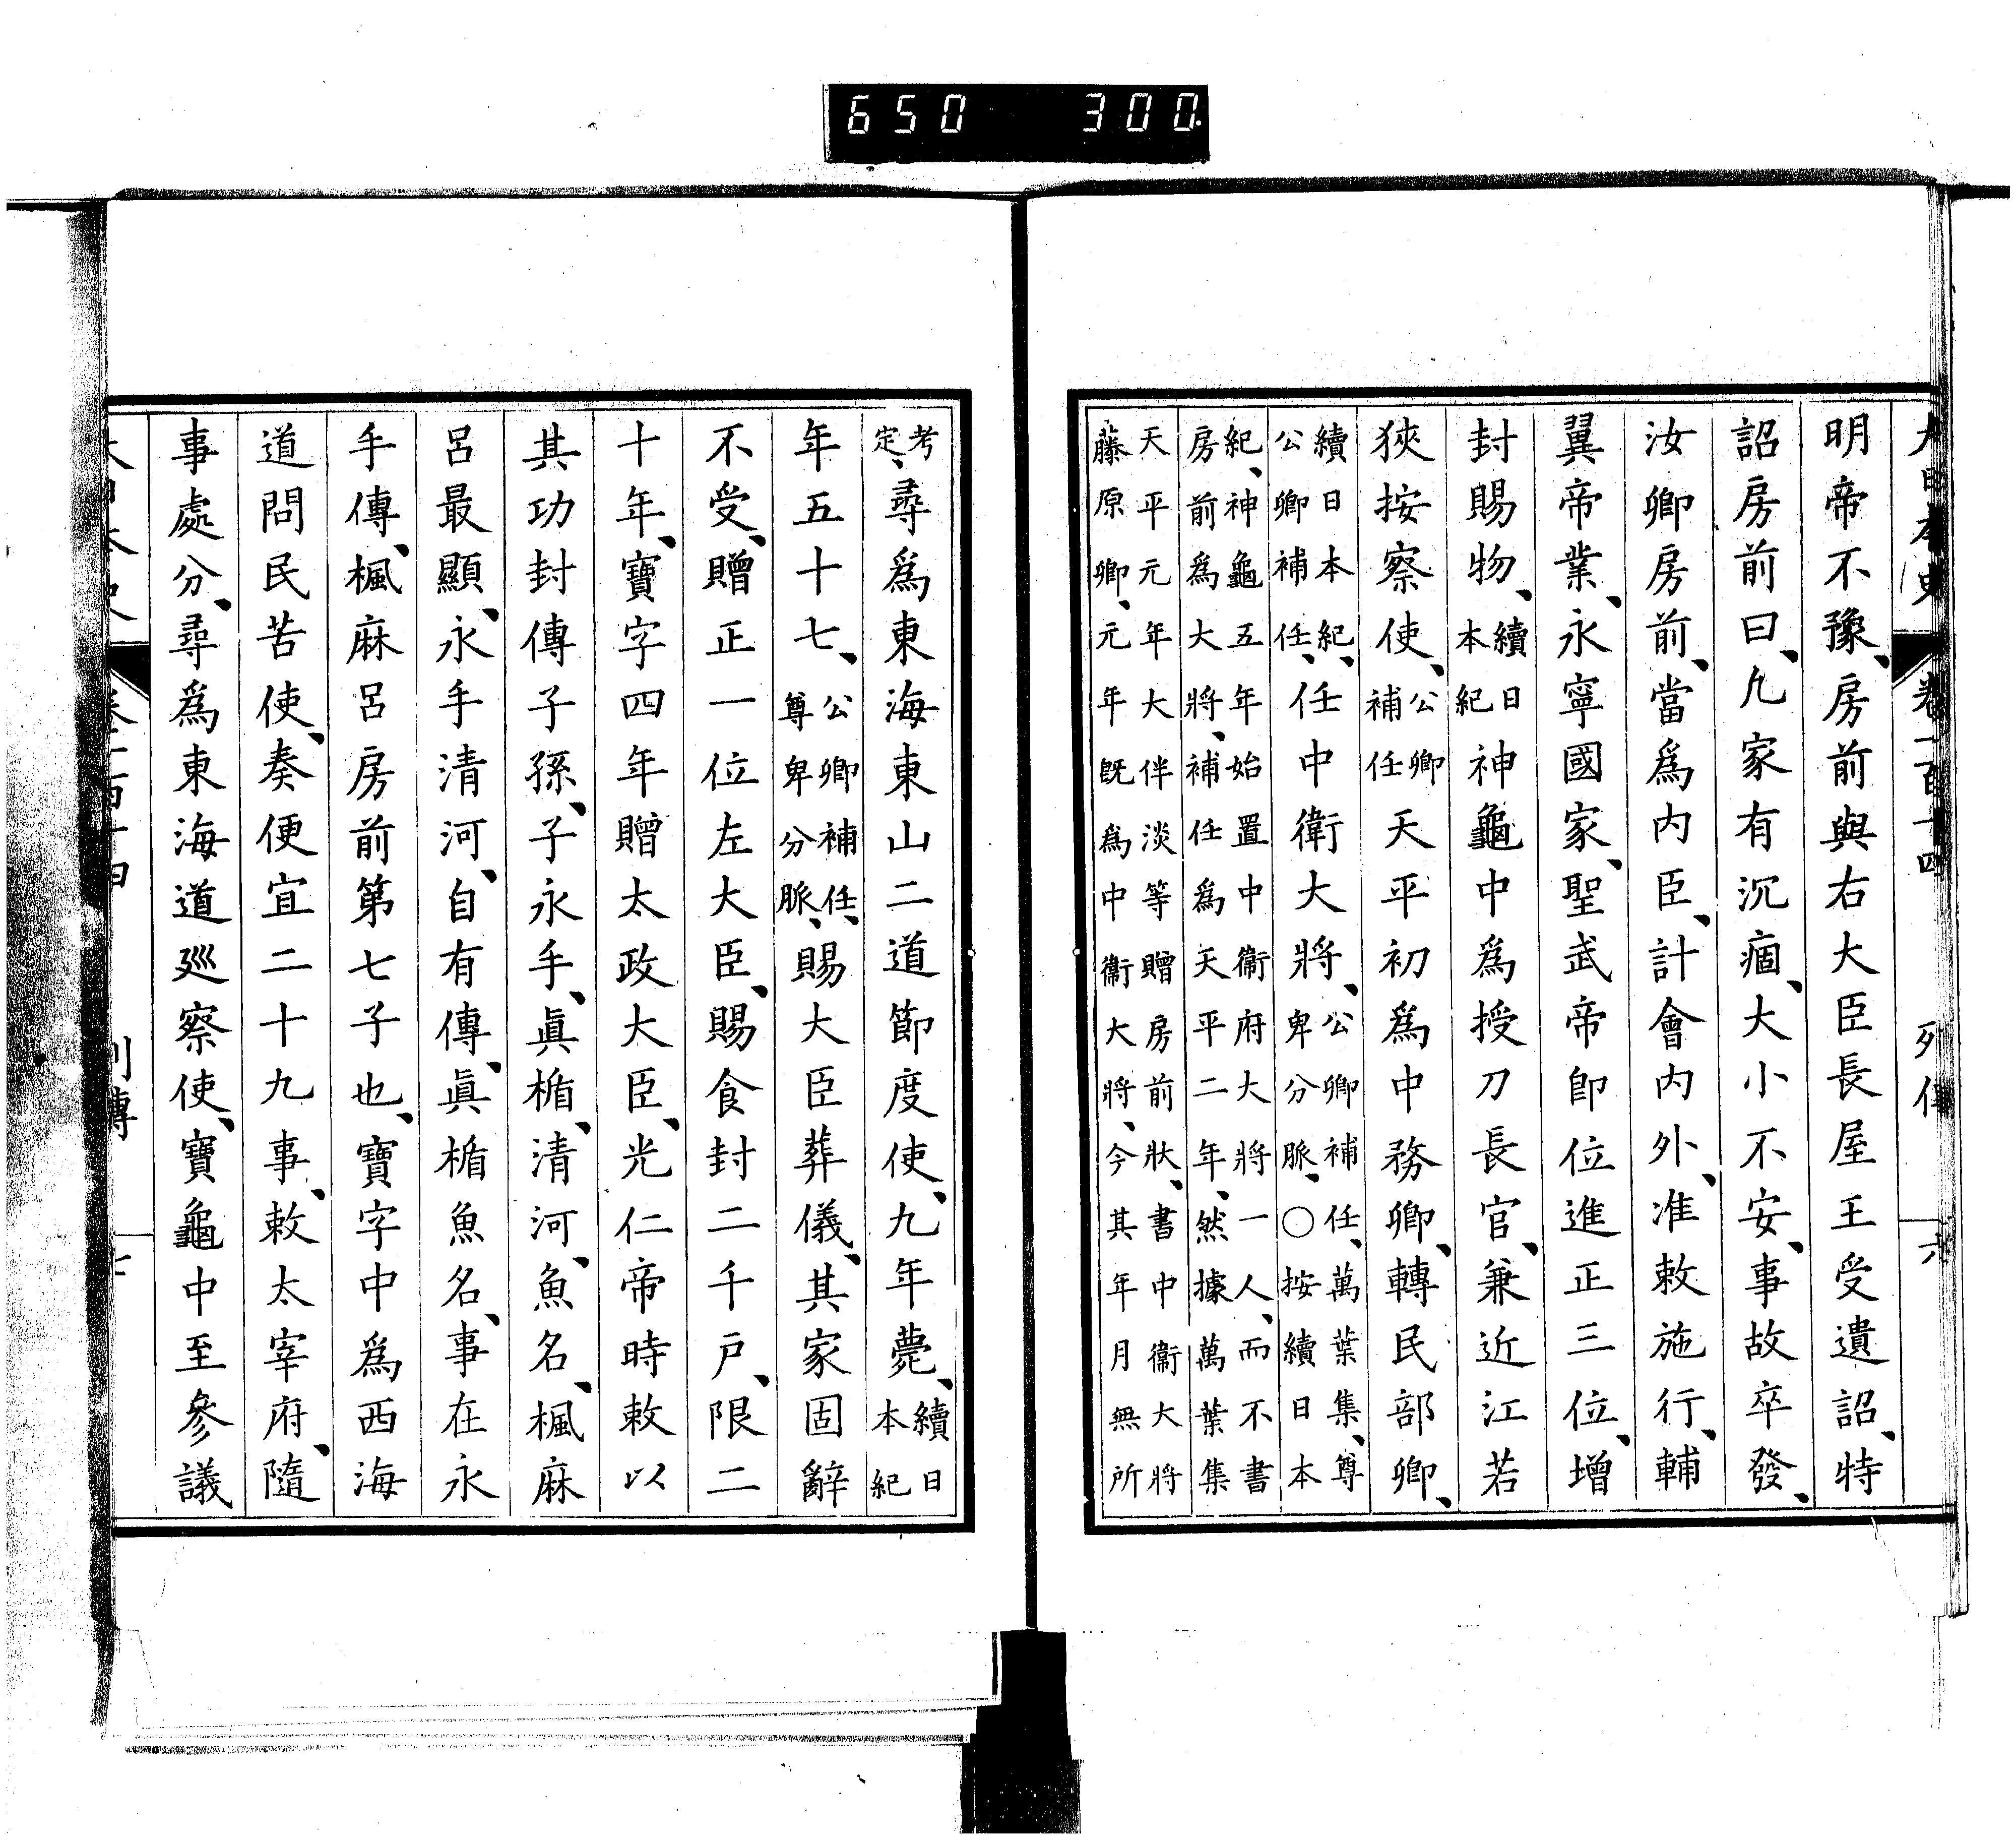 650 300
大日本史 卷一百十四 列傳 六
明帝不豫、房前與右大臣長屋王受遺詔、特
詔房前曰、凢家有沉痼、大小不安、事故卒發、
汝卿房前、當爲内臣、計會内外、准敕施行、輔
翼帝業、永寧國家、聖武帝卽位進正三位、增
封賜物、續日本紀神龜中爲授刀長官、兼近江若
狹按察使、公卿補任天平初爲中務卿、轉民部卿、
續日本紀、公卿補任、任中衛大將、公卿補任、萬葉集、尊卑分脈、○按續日本
紀、神龜五年始置中衞府大將一人、而不書房前爲大將、補任爲天平二年、然據萬葉集
天平元年大伴淡等贈房前狀、書中衞大將藤原卿、元年旣爲中衞大將、今其年月無所
考定、尋爲東海東山二道節度使、九年薨、續日本紀
年五十七、公卿補任、尊卑分脈、賜大臣葬儀、其家固辭
不受、贈正一位左大臣、賜食封二千戸、限二
十年、寶字四年贈太政大臣、光仁帝時敕以
其功封傳子孫、子永手、眞楯、清河、魚名、楓麻
呂最顯、永手清河、自有傳、眞楯魚名、事在永
手傳、楓麻呂房前第七子也、寶字中爲西海
道問民苦使、奏便宜二十九事、敕太宰府、隨
事處分、尋爲東海道廵察使、寶龜中至參議
大日本史 卷一百十四 列傳 七